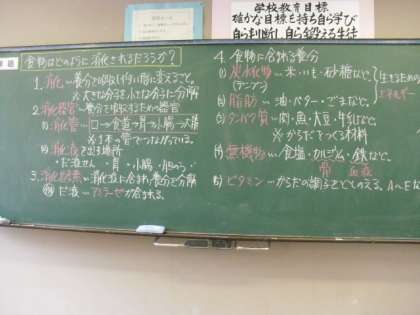 学校教育目標
確かな目標を持ち自ら学び
自ら判断し、自ら鍛える生徒
食物はどのように消化されるだろうか？
1. 消化…養分を吸収しやすい形に変えること。
※大きな分子を小さな分子に分解
2. 消化器官…養分を吸収するための器官
(1) 消化管…口→食道→胃→小腸→大腸
※1本の管でつながっている。
(2) 消化液を出す場所
・だ液せん・胃・小腸・胆のう
3. 消化酵素…消化液に含まれ養分を分解
だ液→アミラーゼが含まれる。
4. 食物に含まれる養分
(1) 炭水化物…米・いも・砂糖など
(デンプン)
生きるための
エネルギー
(2) 脂肪…油・バター・ごまなど。
(3) タンパク質…肉・魚・大豆・牛乳など
※からだをつくる材料
(4) 無機物…食塩・カルシウム・鉄など。
骨 血液
(5) ビタミン…からだの調子をととのえる。A〜Eな